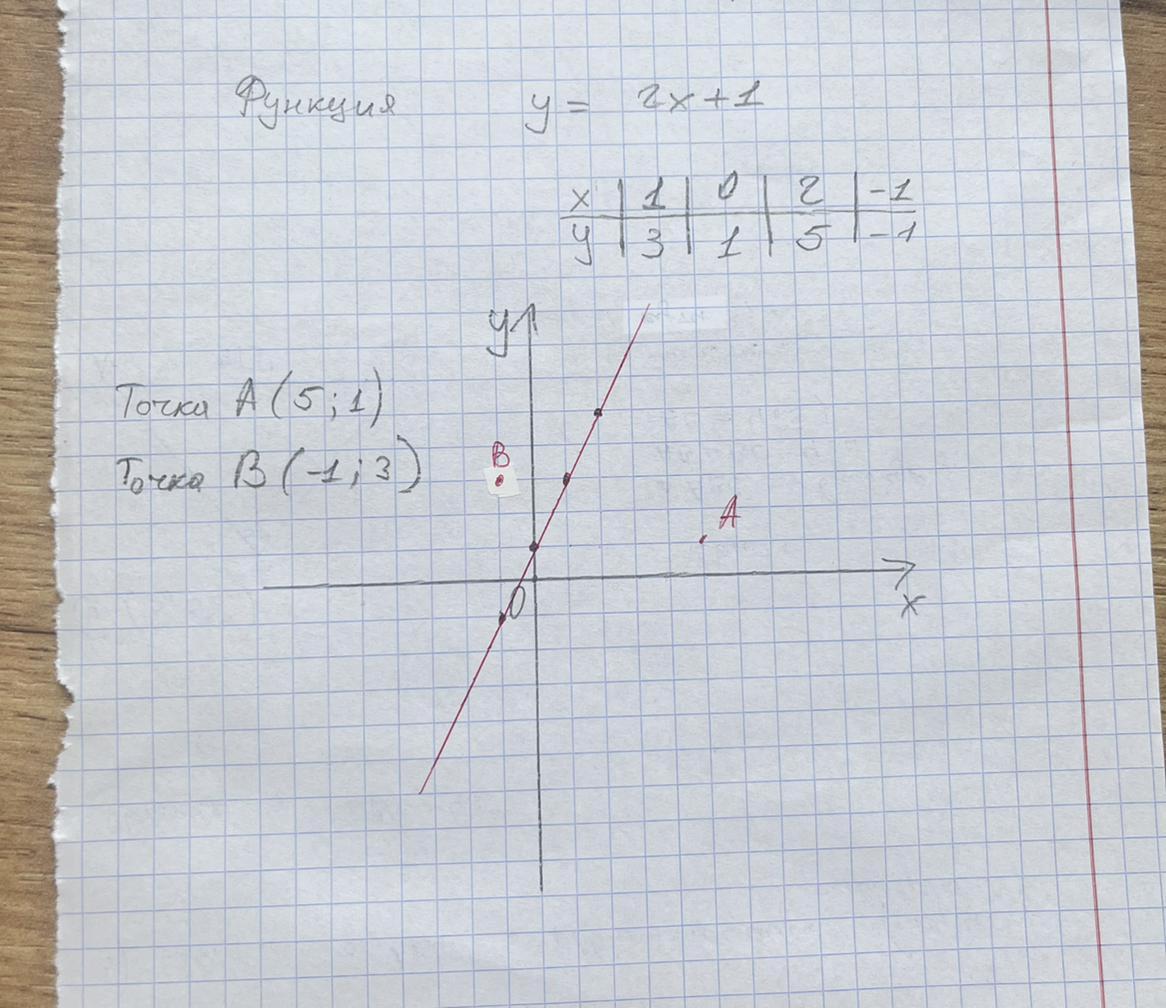 Функция y = 2x+1
x | 1 | 0 | 2 | -1
y | 3 | 1 | 5 | -1
y
Точка A(5;1)
Точка B(-1;3)
B
A
0
x